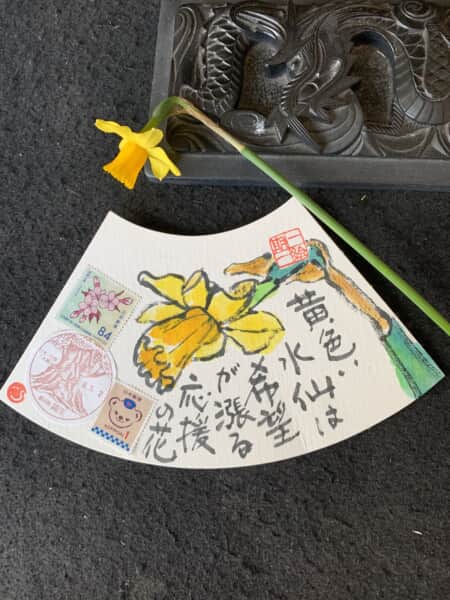 黄色い
水仙は
希望
が漲る
応援
の花
84
1